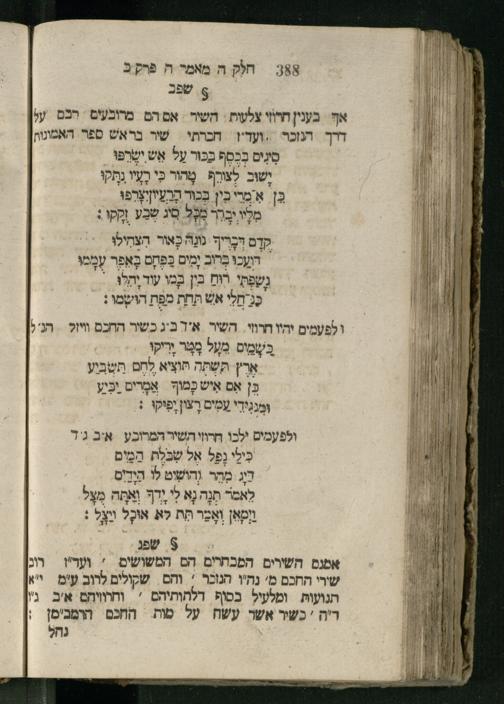 388 חלק ה מאמר ה פרק ב
§ שפב
אך בענין חרוזי צלעות השיר אם הם מרובעים רבם על
דרך הנזכר . ועד״ז חברתי שיר בראש ספר האמונות
סִיגִים בְּכֶסֶף בַּכּוּר עַל אֵשׁ יִשָּׂרֵפוּ
יָשׁוּב לְצוֹרֵף טָהוֹר כִּי רָעָיו נִתָּקוּ
כֵּן אִמְרֵי בִין בְּכוּר הָרַעְיוֹן יִצָּרֵפוּ
מִלָּיו יְבָרֵר מִכָּל סִיג שֶׁבַע זֻקָּקוּ :
קֶדֶם דְּבָרֶיךָ נוֹגַהּ כָּאוֹר הִצְהִילוּ
דּוֹעֲכוּ בְּרוֹב יָמִים כַּפֶּחָם בָּאֵפֶר עֻמָּמוּ
נָשַׁפְתִּי רוּחַ בִּין בָּמוֹ עוֹד יָהֵלּוּ
כְּגַחֲלֵי אֵשׁ תַּחַת מַפֻּחַ הוּשָׂמוּ :
ולפעמים יהיו חרוזי השיר א״ד ב״ג כשיר החכם וויזל הנ״ל
בַּשָּׁמַיִם מֵעָל מָטָר יָרִיקוּ
אֶרֶץ תִּשְׁתֶּה תּוֹצִיא לֶחֶם תַּשְׂבִּיעַ
כֵּן אִם אִישׁ כָּמוֹךָ אֲמָרִים יַבִּיעַ
וּמִנְּגִידֵי עַמִּים רָצוֹן יָפִיקוּ :
ולפעמים ילכו חרוזי השיר המרובע א״ב ג״ד
כִּילַי נָפַל אֶל שִׁבֹּלֶת הַמַּיִם
דַּיָּג מִהֵר וְהוֹשִׁיט לוֹ הַיָּדַיִם
לֵאמֹר תְּנָה נָא לִי יָדְךָ וְאַתָּה מֻצָּל
וַיְמָאֵן וַאֲמַר תֵּת לֹא אוּכַל וַיִּצָּל :
§ שפג
אמנם השירים המבחרים הם המשושים ' ועד״ז רוב
שירי החכם מ' נה״ו הנזכר ' והם שקולים לרוב ע״מ י״א
תנועות ומלעיל בסוף דלתותיהם ' וחרוזיהם א״ב ג״ו
ד״ה ' כשיר אשר עשה על מות החכם הרמב״מן :
נהל